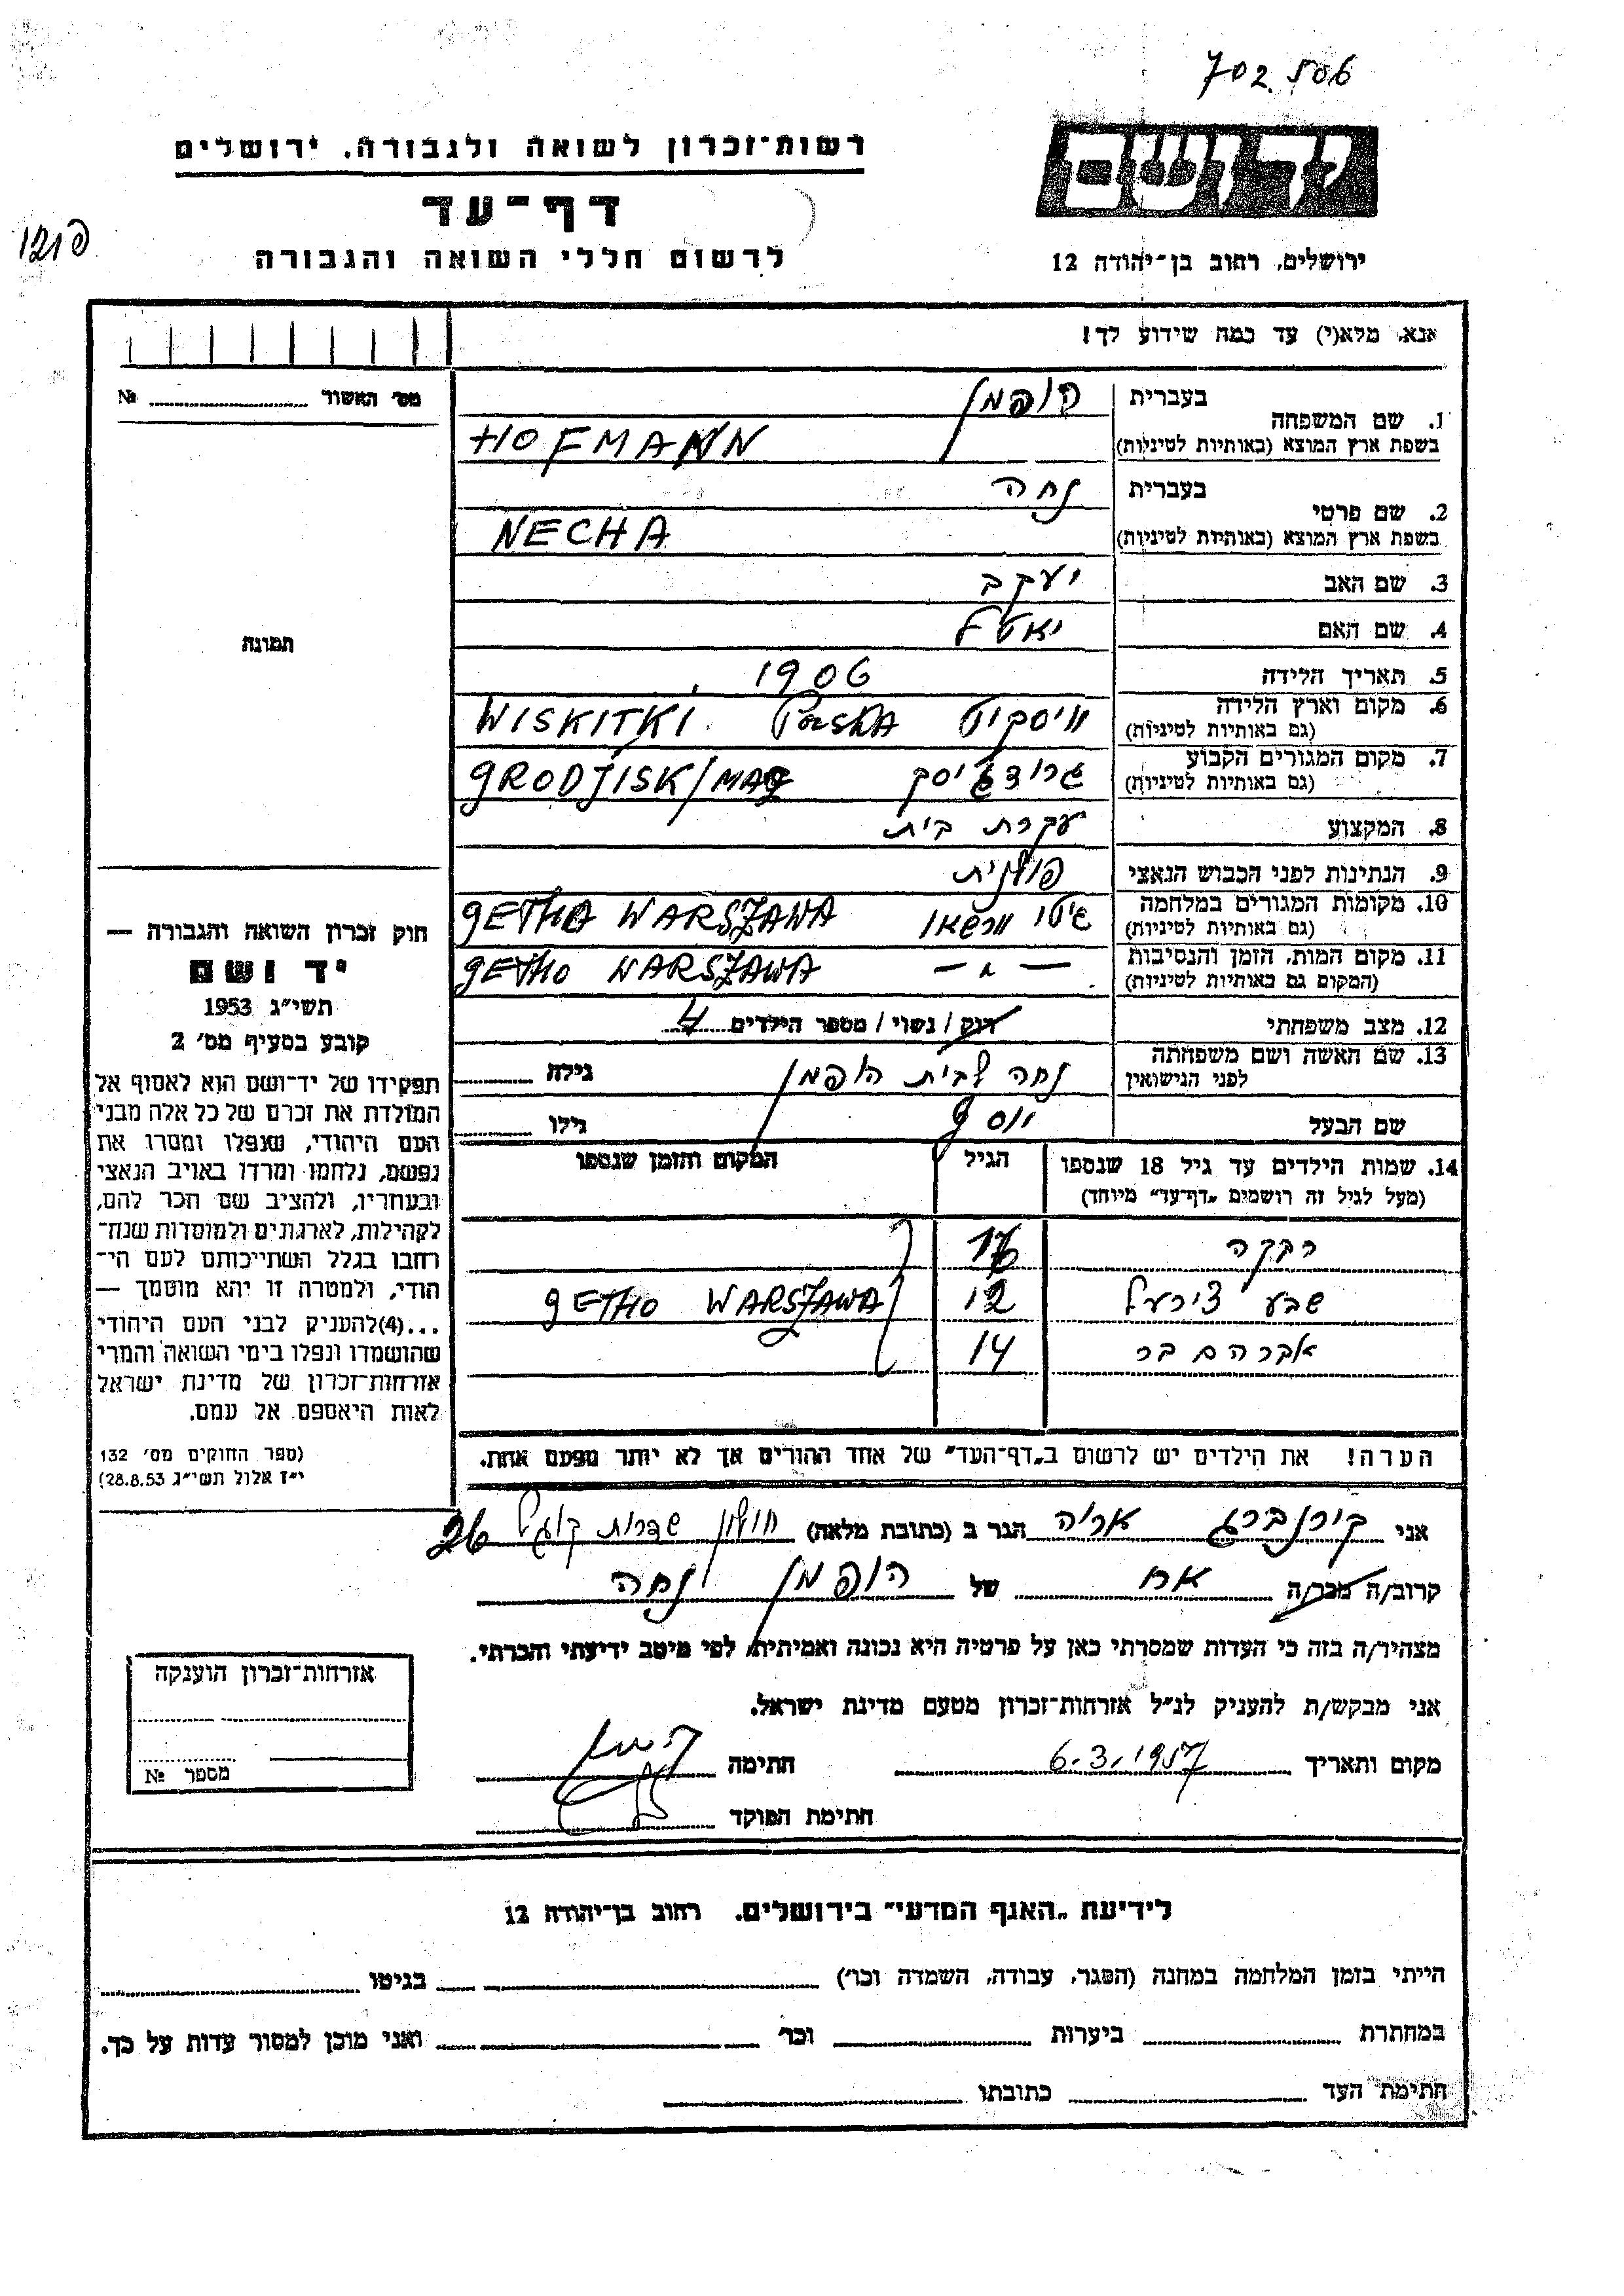 702.506
ידושם
רשות־זכרון לשואה ולגבורה, ירושלים
דף־עד
לרשום חללי השואה והגבורה
ירושלים, רחוב בן־יהודה 12
אנא, מלא(י) עד כמה שידוע לך!
מס׳ האשור № 
בעברית הופמן
1. שם המשפחה
בשפת ארץ המוצא (באותיות לטיניות) HOFMANN
בעברית נחה
2. שם פרטי
בשפת ארץ המוצא (באותיות לטיניות) NECHA
3. שם האב יעקב
4. שם האם יאטל
תמונה
5. תאריך הלידה 1906
6. מקום וארץ הלידה וויסקיט Polska WISKITKI.
(גם באותיות לטיניות)
7. מקום המגורים הקבוע גרודז׳יסק GRODJISK/MAZ
(גם באותיות לטיניות)
8. המקצוע עקרת בית
9. הנתינות לפני הכבוש הנאצי פולנית
10. מקומות המגורים במלחמה גיטו וורשאו GETHO WARSZAWA
(גם באותיות לטיניות)
11. מקום המות, הזמן והנסיבות — " — GETHO WARSZAWA
(המקום גם באותיות לטיניות)
12. מצב משפחתי רוק / נשוי / מספר הילדים 4
13. שם האשה ושם משפחתה נחה לבית הופמן גילה
לפני הנישואין
שם הבעל יוסף גילו
14. שמות הילדים עד גיל 18 שנספו הגיל המקום והזמן שנספו
(מעל לגיל זה רושמים „דף־עד״ מיוחד)
רבקה 16
שבע צירעל 12 GETHO WARSZAWA
אברהם בר 14
הערה! את הילדים יש לרשום ב„דף־העד״ של אחד ההורים אך לא יותר מפעם אחת.
חוק זכרון השואה והגבורה —
יד ושם
תשי״ג 1953
קובע בסעיף מס׳ 2
תפקידו של יד־ושם הוא לאסוף אל
המולדת את זכרם של כל אלה מבני
העם היהודי, שנפלו ומסרו את
נפשם, נלחמו ומרדו באויב הנאצי
ובעוזריו, ולהציב שם וזכר להם,
לקהילות, לארגונים ולמוסדות שנח־
רחבו בגלל השתייכותם לעם הי־
הודי, ולמטרה זו יהא מוסמך —
...(4)להעניק לבני העם היהודי
שהושמדו ונפלו בימי השואה והמרי
אזרחות־זכרון של מדינת ישראל
לאות היאספם אל עמם.
(ספר החוקים מס׳ 132
י״ז אלול תשי״ג 28.8.53)
אני קירנברג אריה הגר ב (כתובת מלאה) חולון שדרות קוגל 26
קרוב/ה מכר/ה אח של הופמן נחה
מצהיר/ה בזה כי העדות שמסרתי כאן על פרטיה היא נכונה ואמיתית, לפי מיטב ידיעתי והכרתי.
אני מבקש/ת להעניק לנ״ל אזרחות־זכרון מטעם מדינת ישראל.
מקום ותאריך 6.3.1957 חתימה
חתימת הפוקד
אזרחות־זכרון הוענקה
מספר №
לידיעת „האגף המדעי״ בירושלים, רחוב בן־יהודה 12
הייתי בזמן המלחמה במחנה (הסגר, עבודה, השמדה וכו׳) בגיטו
במחתרת ביערות וכו׳ ואני מוכן למסור עדות על כך.
חתימת העד כתובתו